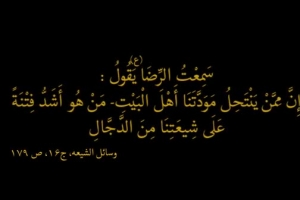 سَمِعْتُ الرِّضَا(ع) يَقُولُ :
إِنَّ مِمَّنْ يَنْتَحِلُ مَوَدَّتَنَا أَهْلَ الْبَيْتِ- مَنْ هُوَ أَشَدُّ فِتْنَةً
عَلَى شِيعَتِنَا مِنَ الدَّجَّالِ
وسائل الشيعه، ج۱۶، ص ۱۷۹